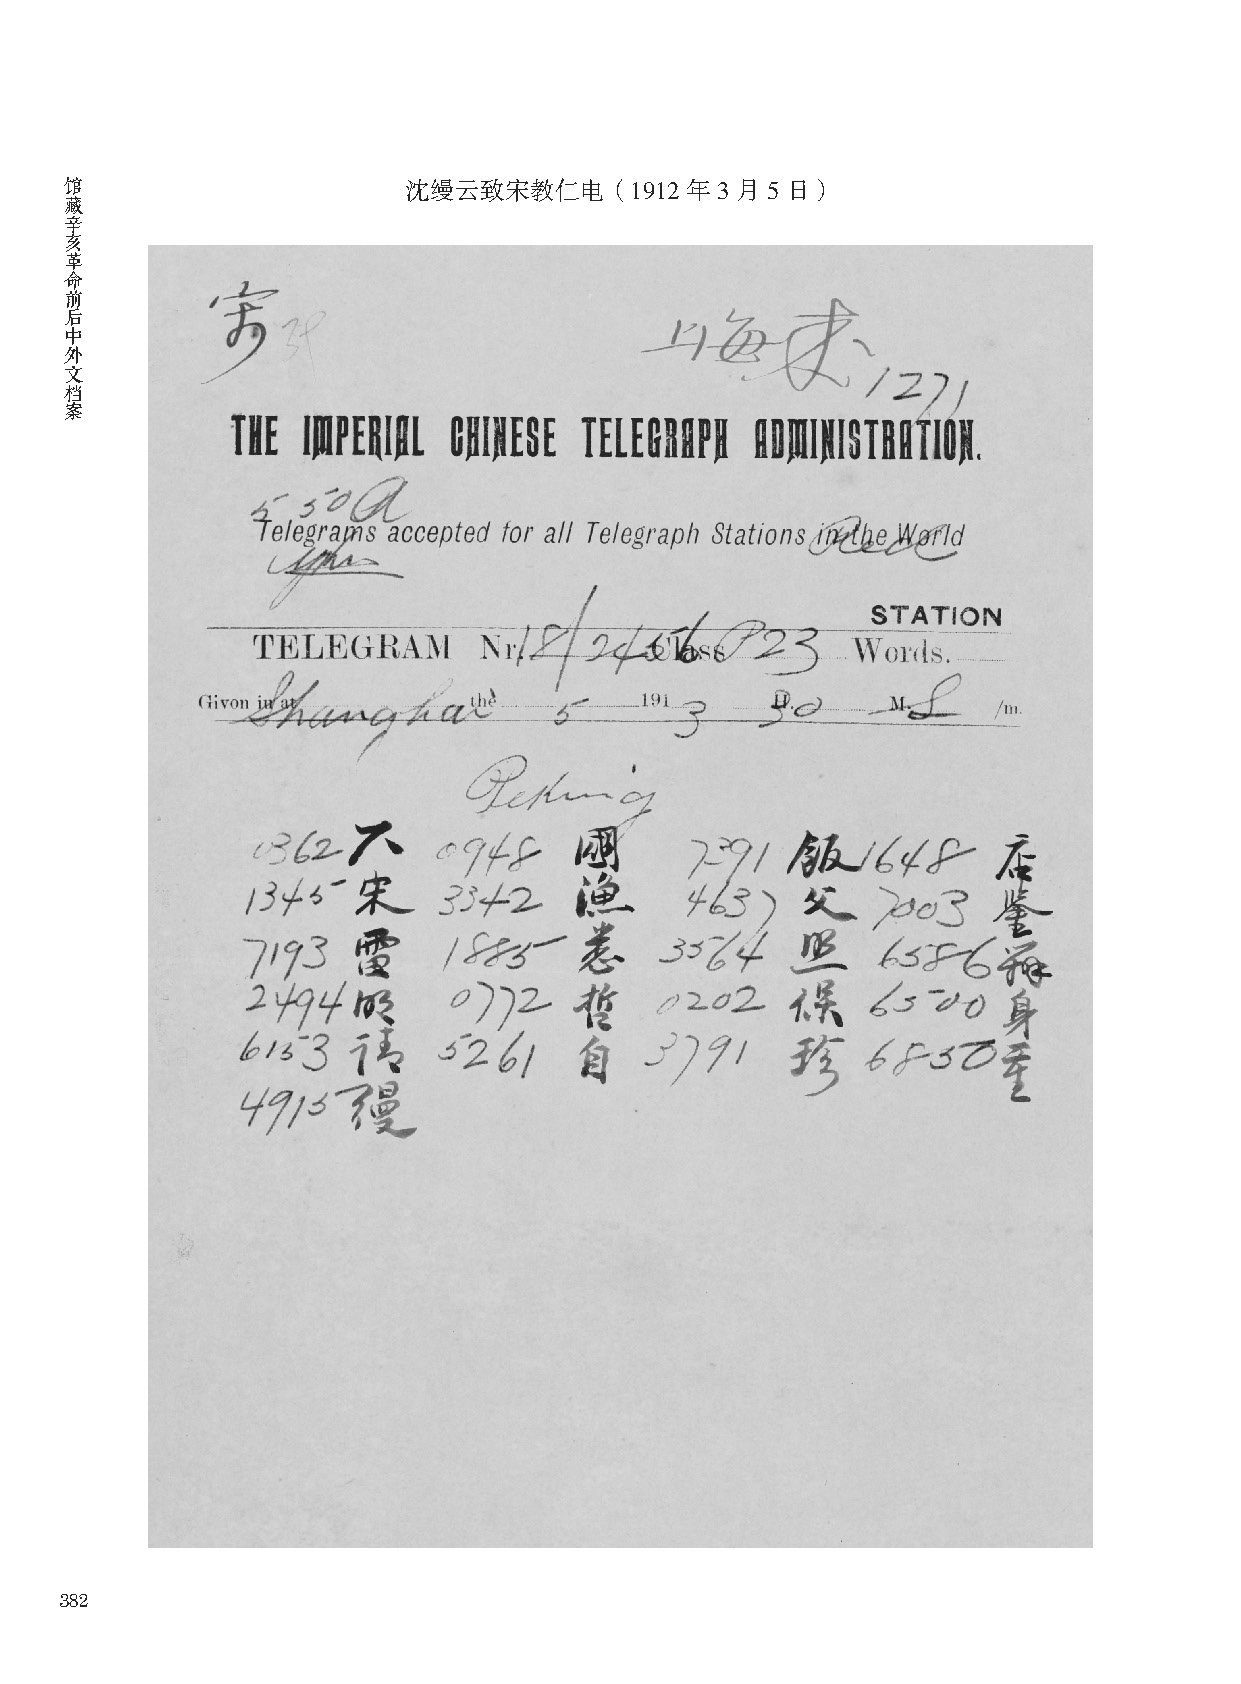 馆藏辛亥革命前后中外文档案
沈缦云致宋教仁电（1912年3月5日）
宋
上海来
1271
THE IMPERIAL CHINESE TELEGRAPH ADMINISTRATION.
5 50 A
Telegrams accepted for all Telegraph Stations in the World
STATION
TELEGRAM Nr. 18/2456 Class P 23 Words.
Givon in at Shanghai the 5 191 3 H. 30 M. S /m.
Peking
0362 六 0948 國 7391 飯 1648 店
1345 宋 3342 漁 4637 父 7003 鑒
7193 電 1885 悉 3564 照 6586 辦
2494 明 0772 哲 0202 保 6500 身
6153 請 5261 自 3791 珍 6850 重
4915 縵
382